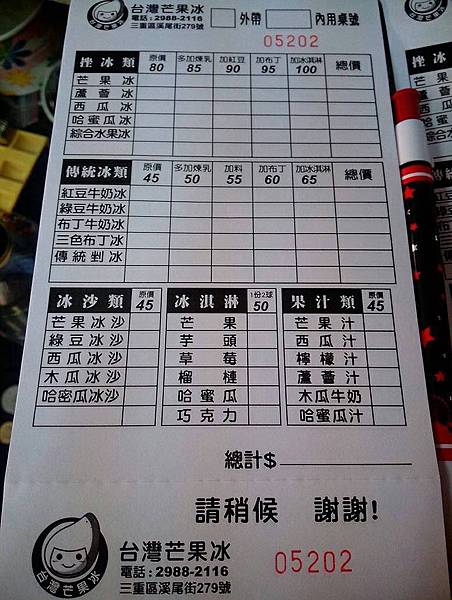 台灣芒果冰
電話：2988-2116
三重區溪尾街279號
外帶 內用桌號
台灣芒果冰
05202
挫冰類 原價 80 多加煉乳 85 加紅豆 90 加布丁 95 加冰淇淋 100 總價
芒果冰
蘆薈冰
西瓜冰
哈蜜瓜冰
綜合水果冰
傳統冰類 原價 45 多加煉乳 50 加料 55 加布丁 60 加冰淇淋 65 總價
紅豆牛奶冰
綠豆牛奶冰
布丁牛奶冰
三色布丁冰
傳統剉冰
冰沙類 原價 45 冰淇淋 1份2球 50 果汁類 原價 45
芒果冰沙 芒果 芒果汁
綠豆冰沙 芋頭 西瓜汁
西瓜冰沙 草莓 檸檬汁
木瓜冰沙 榴槤 蘆薈汁
哈密瓜冰沙 哈蜜瓜 木瓜牛奶
巧克力 哈蜜瓜汁
總計$
請稍候 謝謝!
台灣芒果冰
台灣芒果冰
電話：2988-2116
三重區溪尾街279號
05202